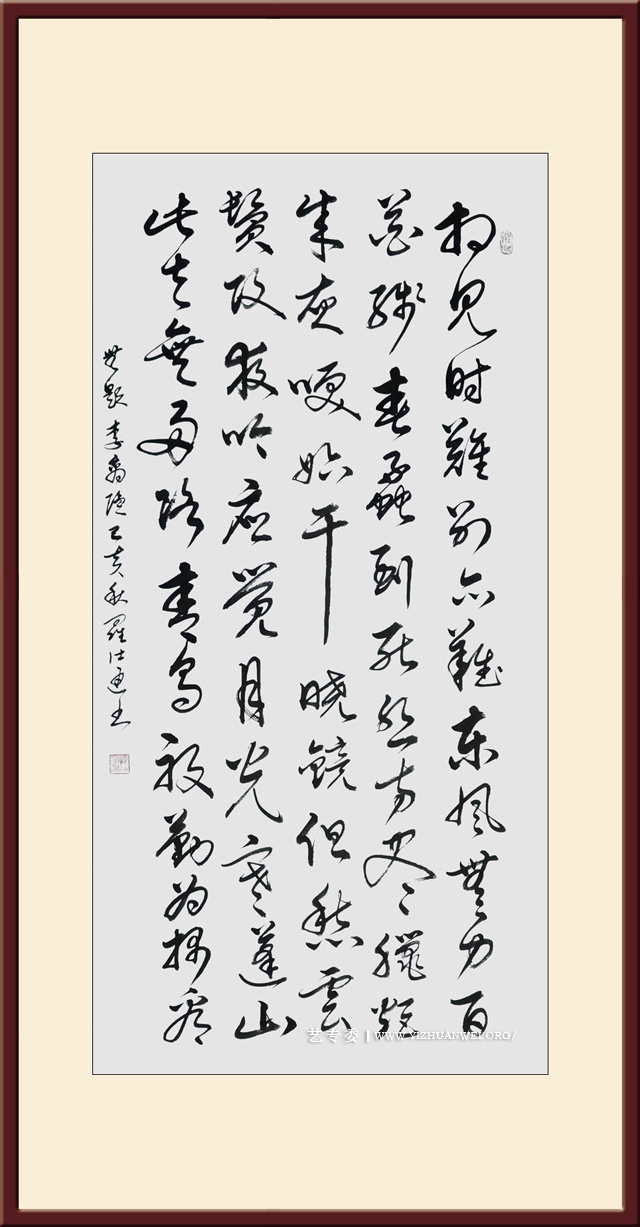 相见时難别亦難东風無力百
花残春蚕到死丝方尽蠟炬
成灰哽始干晓鏡但愁雲
鬓改夜吟应觉月光寒蓬山
此去無多路青鸟殷勤为探看
無题 李商隐 己亥秋 羅仕通书
艺专委 | WWW.YIZHUANWEI.ORG/